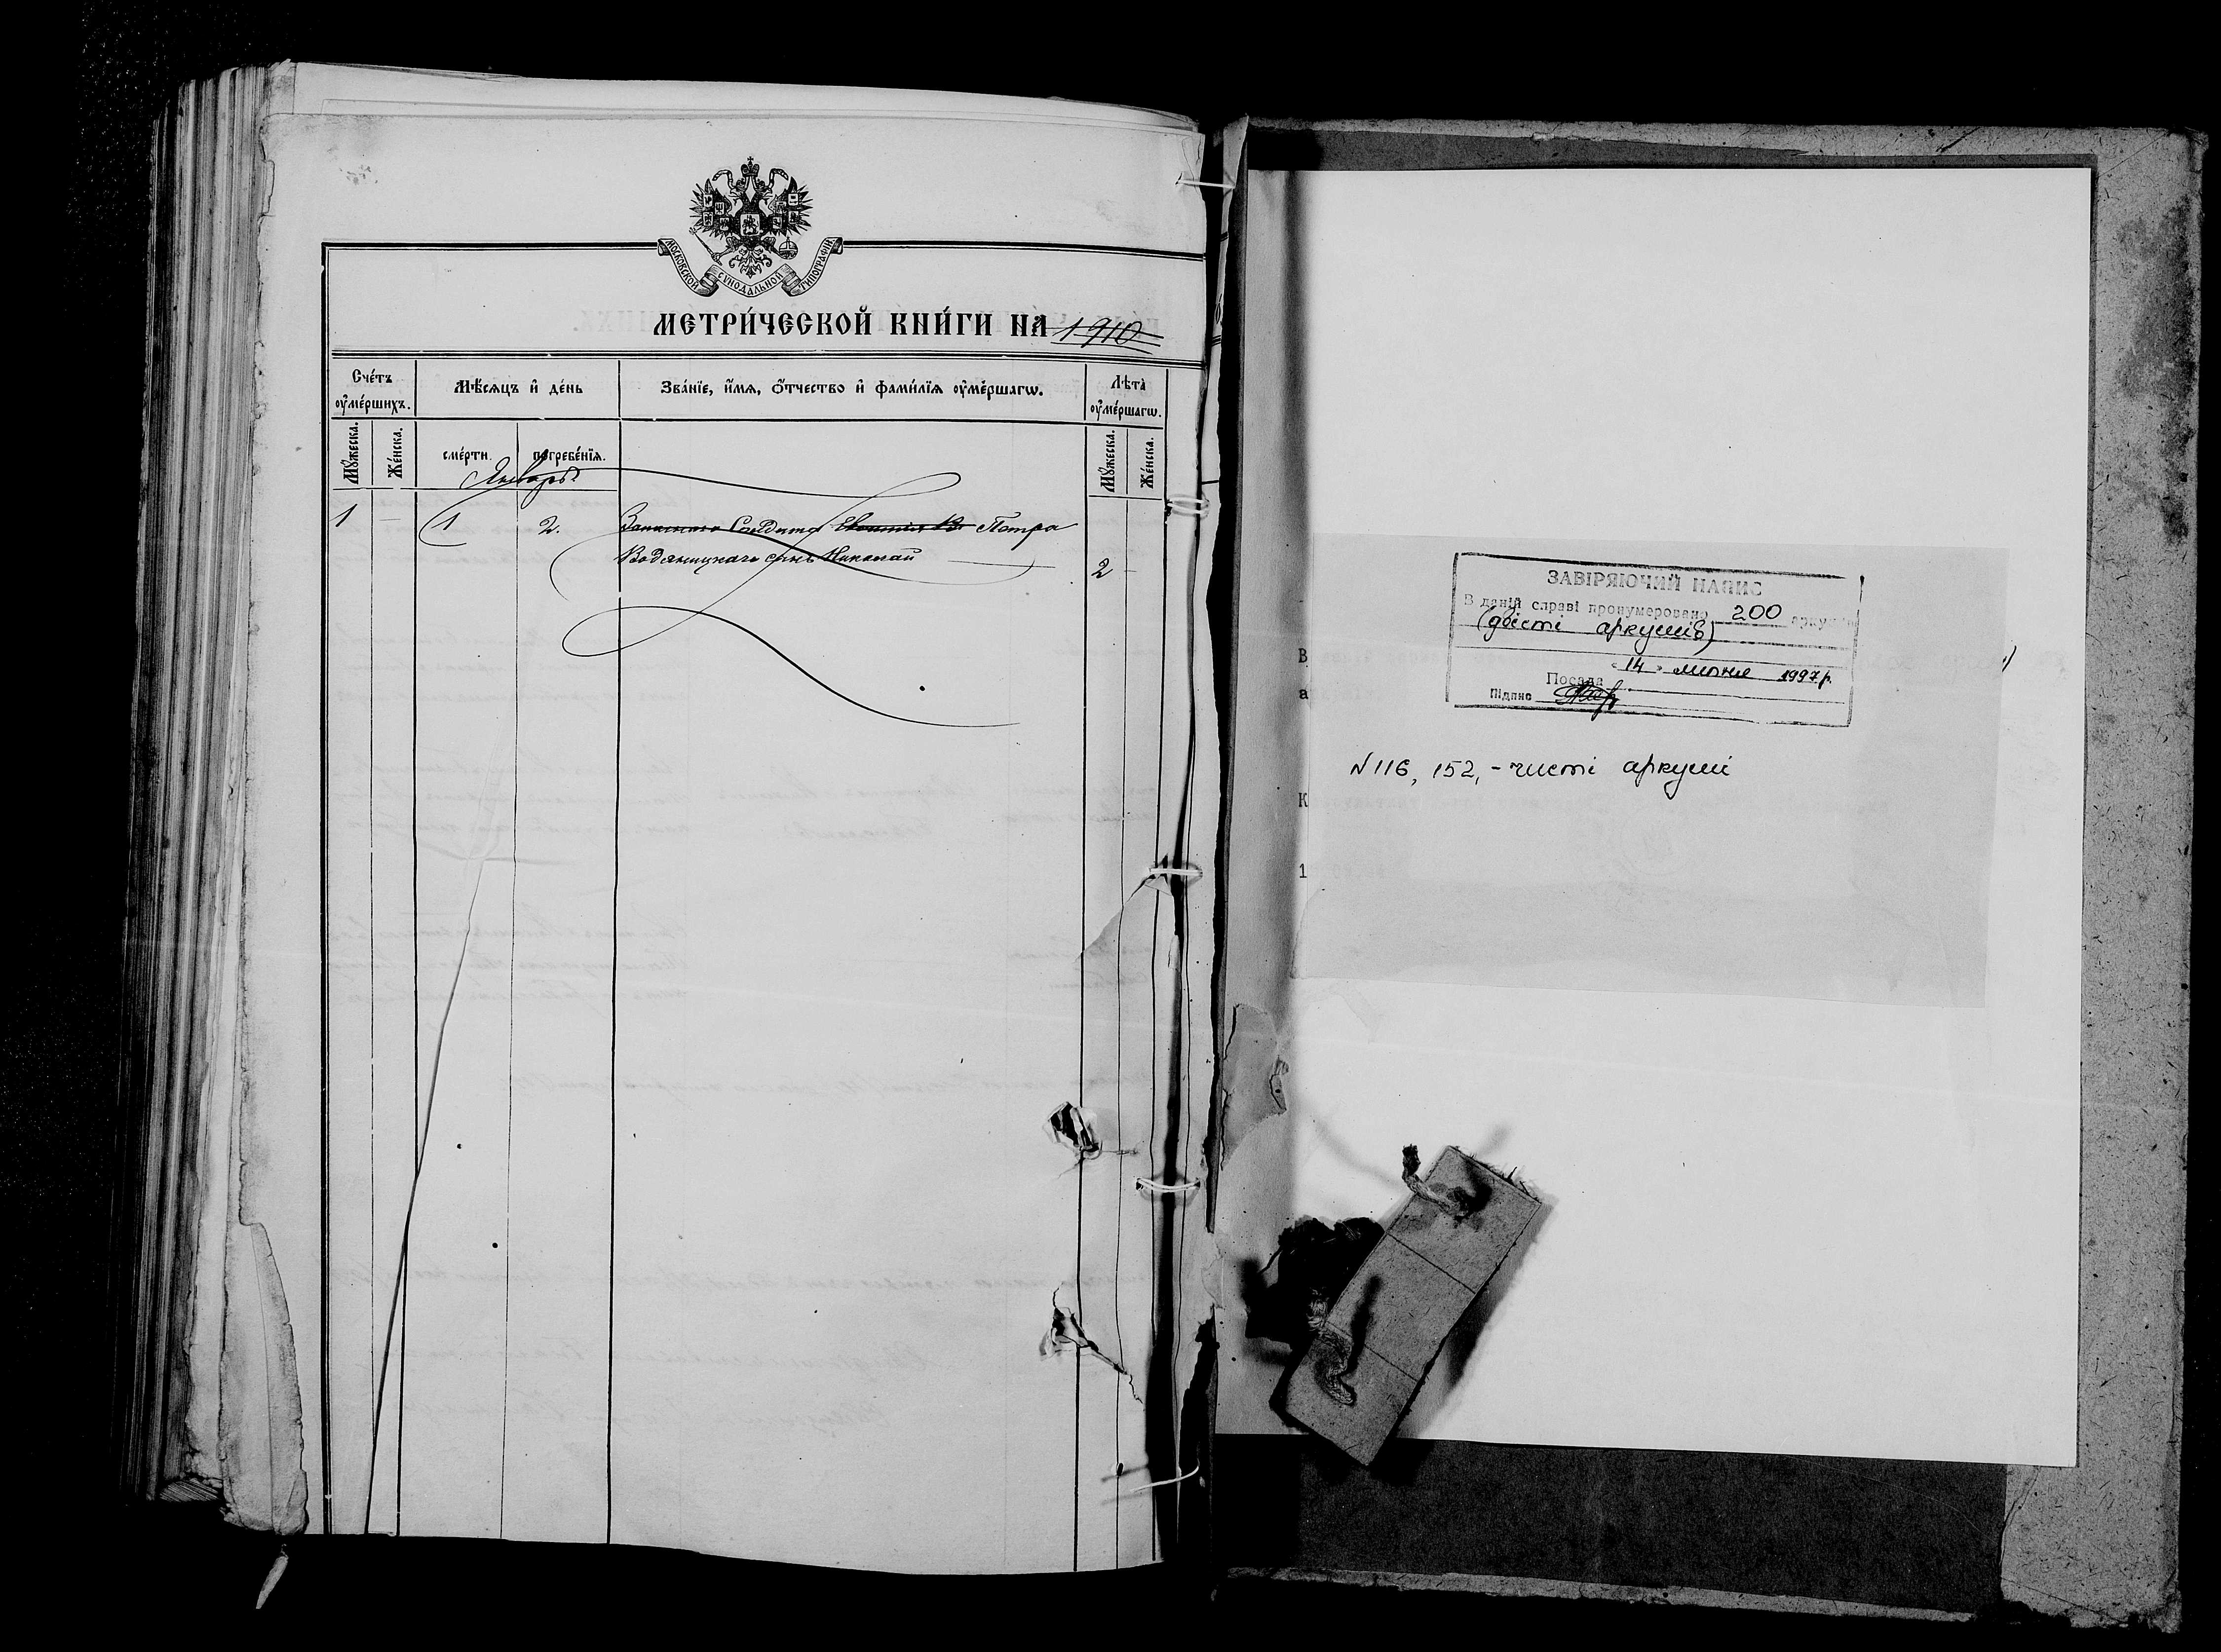 МОСКОВСКОЙ СѴНОДАЛЬНОЙ ТИПОГРАФІИ
МЕТРИ́ЧЕСКОЙ КНИ́ГИ НА 1910
Сче́тъ оу҆ме́ршихъ.
Мѣ́сяцъ и҆ де́нь
Зва́нїе, и҆́мя, ѻ҆́тчество и҆ фами́лїя оу҆ме́ршагѡ.
Лѣта̀ оу҆ме́ршагѡ.
Мꙋ́жеска.
Же́нска.
сме́рти.
погребе́нїя.
Мꙋ́жеска.
Же́нска.
Январь
1 — 1 2. Запаснаго Солдата Петра
Водяницкаго сынъ Николай 2 —
ЗАВІРЯЮЧИЙ НАПИС
В даній справі пронумеровано 200 аркушів
(двісті аркушів)
"14" липня 1997 р.
Посада
Підпис
N 116, 152, - чисті аркуші
В
а
К
1